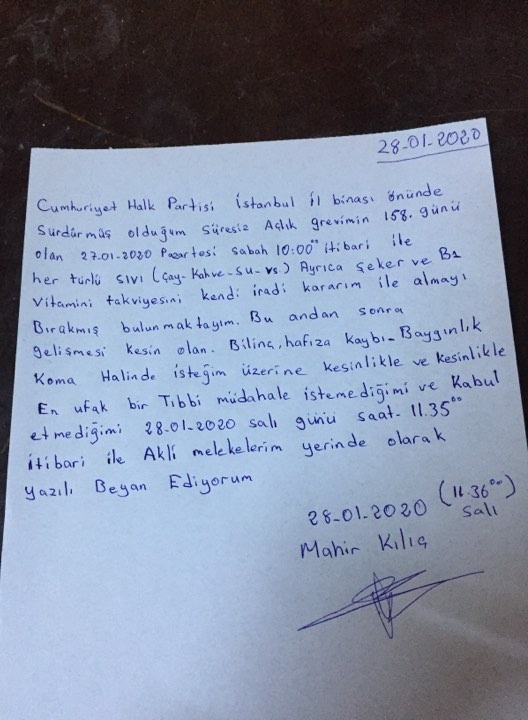 28-01-2020
Cumhuriyet Halk Partisi İstanbul İl binası önünde
Sürdürmüş olduğum Süresiz Açlık grevimin 158. günü
olan 27-01-2020 Pazartesi Sabah 10:00°° itibari ile
her türlü sıvı (Çay-Kahve-su-vs.) Ayrıca şeker ve B1
Vitamini takviyesini kendi iradi kararım ile almayı
Bırakmış bulunmaktayım. Bu andan sonra
gelişmesi kesin olan. Bilinç, hafıza kaybı-Baygınlık
Koma Halinde isteğim üzerine kesinlikle ve kesinlikle
En ufak bir Tıbbi müdahale istemediğimi ve Kabul
etmediğimi 28-01-2020 salı günü saat-11.35°°
itibari ile Akli melekelerim yerinde olarak
yazılı Beyan Ediyorum
28-01-2020 (11.36°°)
Salı
Mahir Kılıç